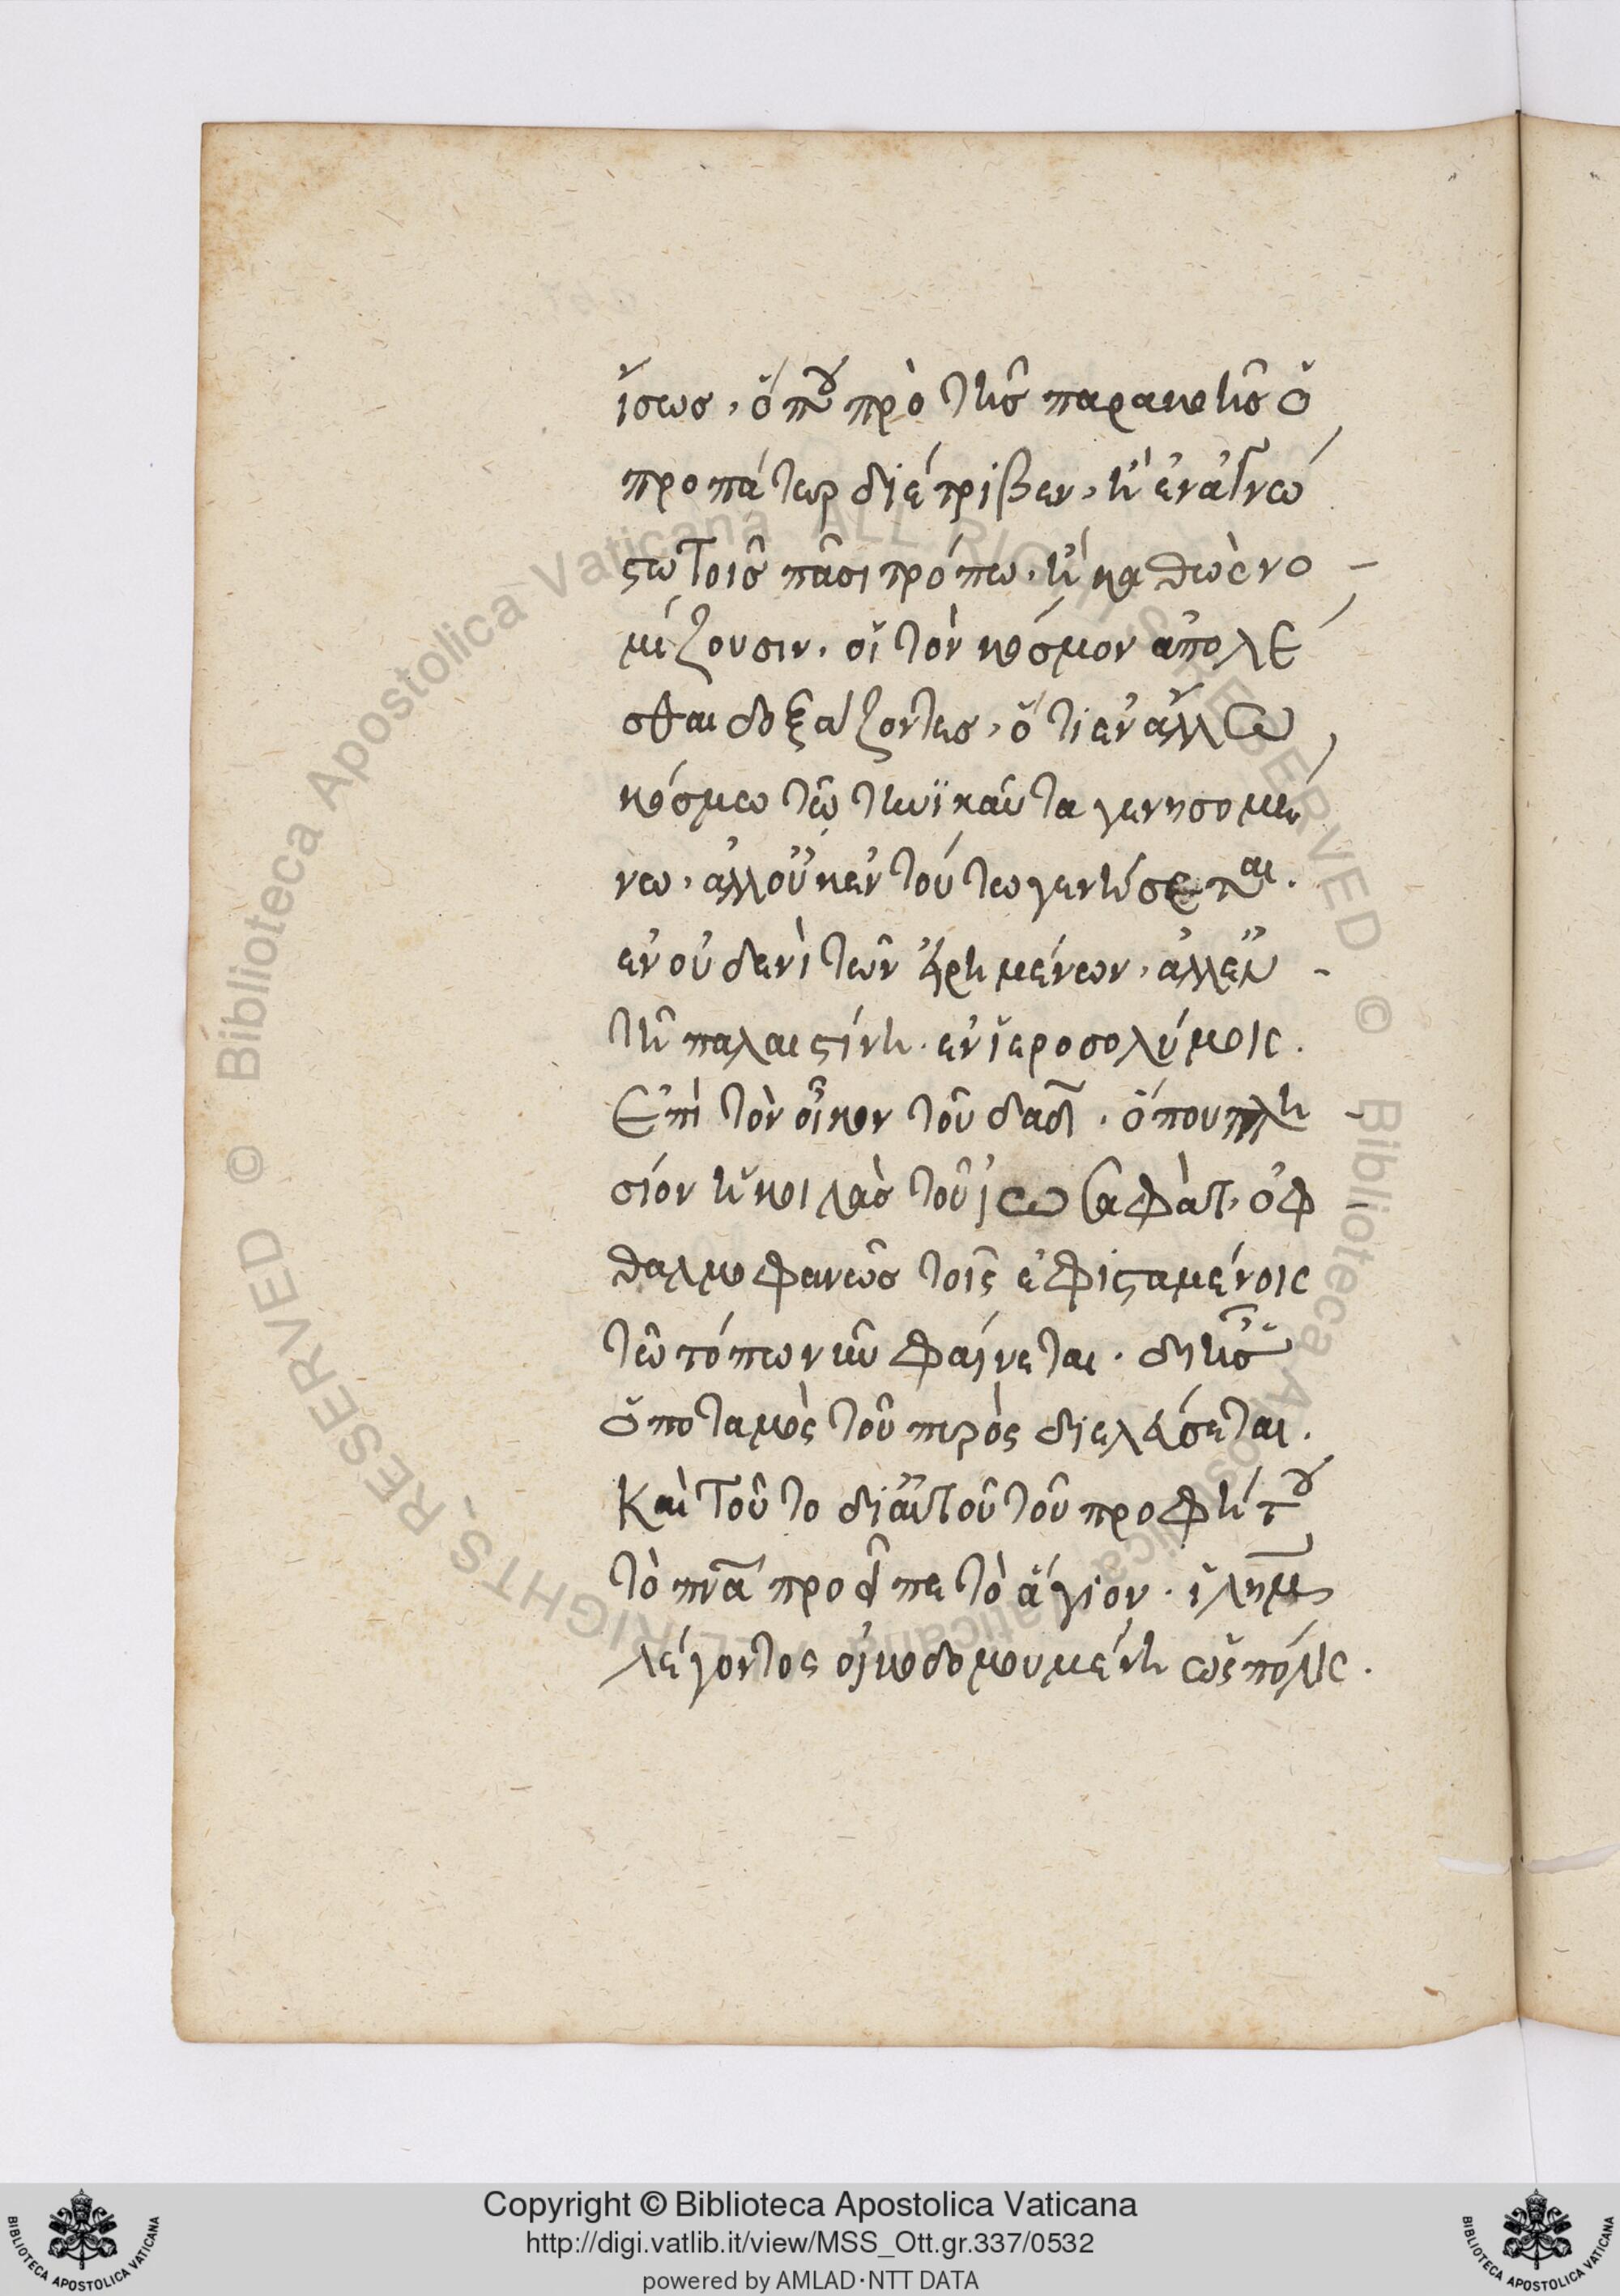 ἴσως, ὅπου πρὸ τῆς παρακοῆς ὁ
προπάτωρ διέτριβεν, ἢ ἐν ἀγνώ
στω τοῖς πᾶσι τρόπω, ἢ καθὼς νο-
μίζουσιν, οἱ τὸν κόσμον ἀπολέ
σθαι δοξάζοντες, ὅτι ἐν ἄλλω
κόσμω τῶ τηνϊκαῦτα γενησομέ
νω, ἀλλ οὐκ ἐν τούτω γενήσεται.
ἐν οὐδενὶ τῶν εἰρημένων, ἀλλ ἐν -
τῆ παλαιστίνη. ἐν ἱεροσολύμοις.
Ἐπὶ τὸν οἶκον τοῦ δαδ. ὅπου πλη-
σίον ἡ κοιλὰς τοῦ ἰωσαφὰτ, ὀφ
θαλμοφανῶς τοῖς ἐφισταμένοις
τῶ τόπω νῦν φαίνεται. δι ἧς
ὁ ποταμὸς τοῦ πυρὸς διελεύσεται.
Καὶ τοῦτο δι αὐτοῦ τοῦ προφήτου
τὸ πνα προεῖπε τὸ ἅγιον. ἱλημ
λέγοντος οἰκοδομουμένη ὡς πόλις.
Copyright © Biblioteca Apostolica Vaticana
http://digi.vatlib.it/view/MSS_Ott.gr.337/0532
powered by AMLAD·NTT DATA
BIBLIOTECA APOSTOLICA VATICANA
BIBLIOTECA APOSTOLICA VATICANA
© Biblioteca Apostolica Vaticana ALL RIGHTS RESERVED © Biblioteca Apostolica Vaticana ALL RIGHTS RESERVED